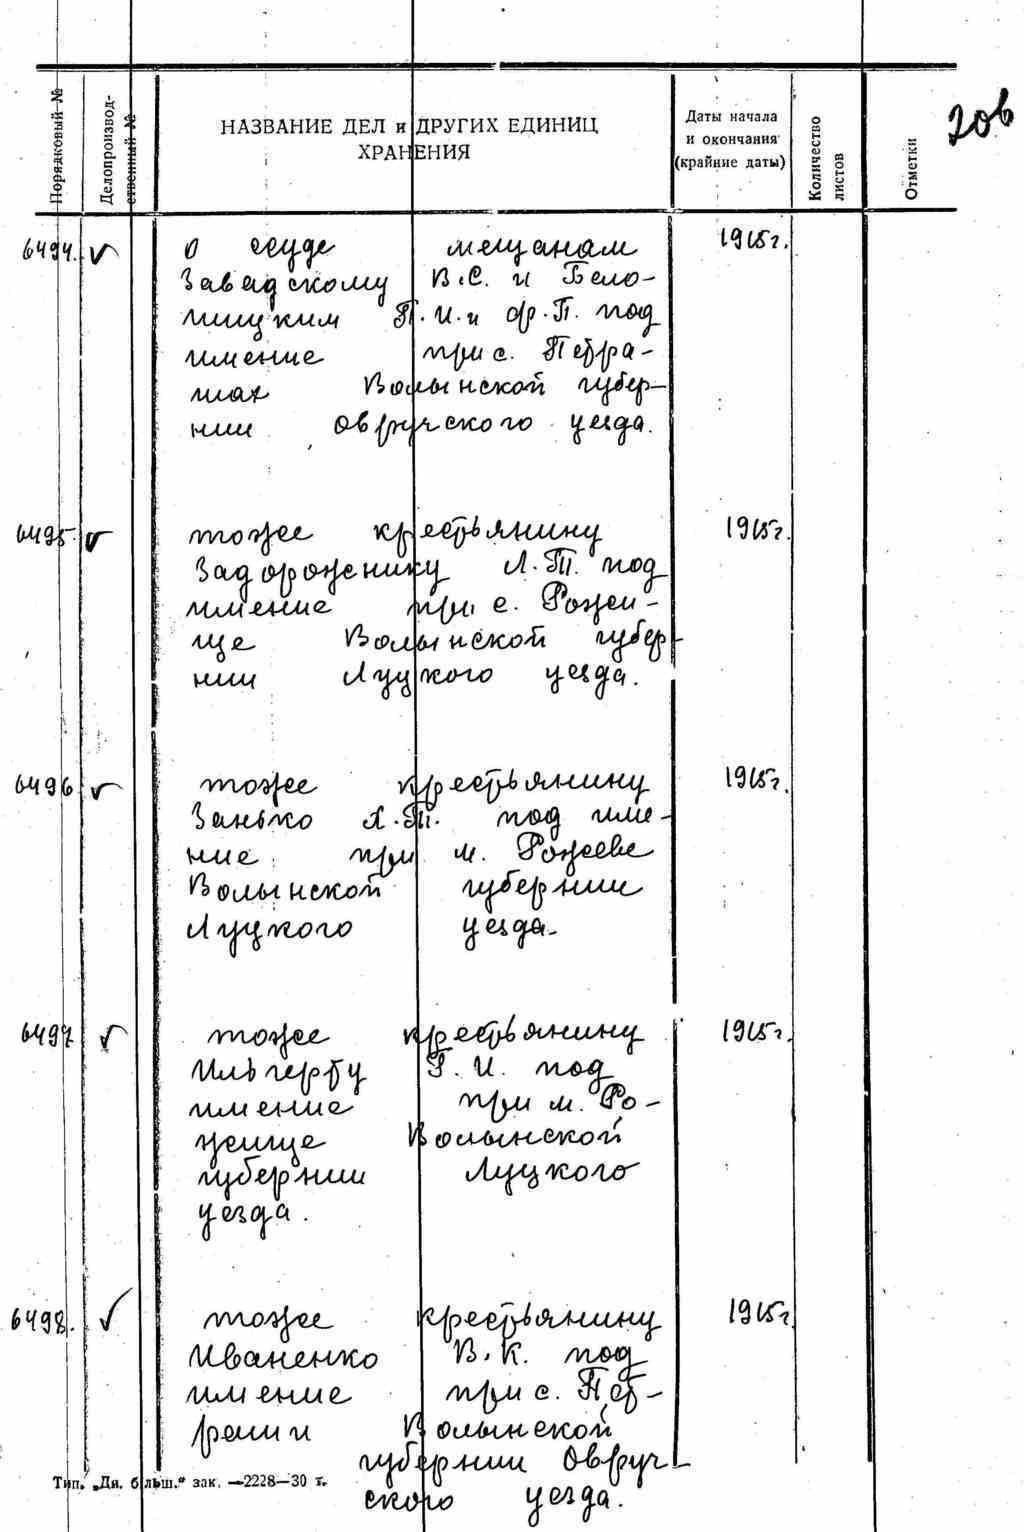 20в
Порядковый №
Делопроизвод-
ственный №
НАЗВАНИЕ ДЕЛ и ДРУГИХ ЕДИНИЦ
ХРАНЕНИЯ
Даты начала
и окончания
(крайние даты)
Количество
листов
Отметки
6494. о ссуде мещанам 1915г.
Завадскому В.С. и Бело-
шицким П.И. и Ф.П. под
имение при с. Петра-
шах Волынской губер-
нии Овручского уезда.
6495. тоже крестьянину 1915г.
Задорожнику Л.Т. под
имение при с. Рожи-
ще Волынской губер
нии Луцкого уезда.
6496 тоже крестьянину 1915г.
Занько Х.Т. под име-
ние при м.
Волынской губернии
Луцкого уезда.
6497 тоже крестьянину 1915г.
Ильгерту Г.И. под
имение при м. Ро-
жище Волынской
губернии Луцкого
уезда.
6498. тоже крестьянину 1915г.
Иваненко В.К. под
имение при с. Пет-
раши Волынской
губернии Овруч-
ского уезда.
Тип. „Дн. більш.“ зак. —2228—30 т.